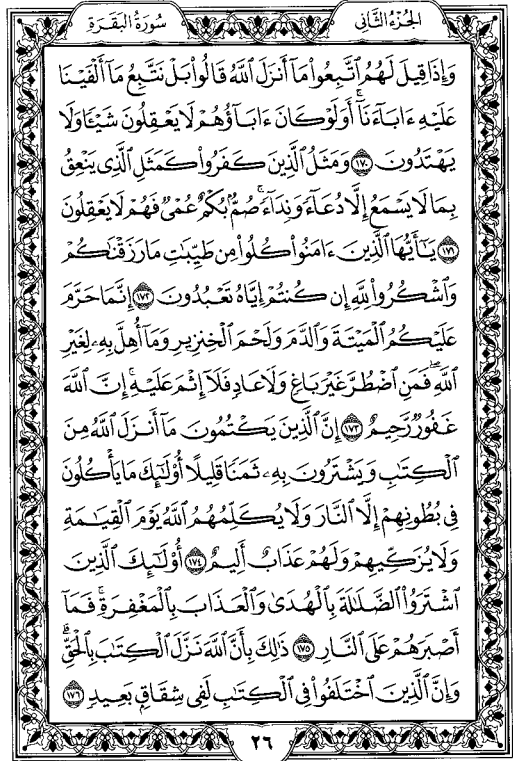 الجُزْءُ الثَّانِي
سُورَةُ الْبَقَرَةِ
وَإِذَا قِيلَ لَهُمُ ٱتَّبِعُوا۟ مَآ أَنزَلَ ٱللَّهُ قَالُوا۟ بَلْ نَتَّبِعُ مَآ أَلْفَيْنَا
عَلَيْهِ ءَابَآءَنَآ ۗ أَوَلَوْ كَانَ ءَابَآؤُهُمْ لَا يَعْقِلُونَ شَيْـًٔا وَلَا
يَهْتَدُونَ ١٧٠ وَمَثَلُ ٱلَّذِينَ كَفَرُوا۟ كَمَثَلِ ٱلَّذِى يَنْعِقُ
بِمَا لَا يَسْمَعُ إِلَّا دُعَآءً وَنِدَآءً ۚ صُمٌّۢ بُكْمٌ عُمْىٌ فَهُمْ لَا يَعْقِلُونَ
١٧١ يَـٰٓأَيُّهَا ٱلَّذِينَ ءَامَنُوا۟ كُلُوا۟ مِن طَيِّبَـٰتِ مَا رَزَقْنَـٰكُمْ
وَٱشْكُرُوا۟ لِلَّهِ إِن كُنتُمْ إِيَّاهُ تَعْبُدُونَ ١٧٢ إِنَّمَا حَرَّمَ
عَلَيْكُمُ ٱلْمَيْتَةَ وَٱلدَّمَ وَلَحْمَ ٱلْخِنزِيرِ وَمَآ أُهِلَّ بِهِۦ لِغَيْرِ
ٱللَّهِ ۖ فَمَنِ ٱضْطُرَّ غَيْرَ بَاغٍ وَلَا عَادٍ فَلَآ إِثْمَ عَلَيْهِ ۚ إِنَّ ٱللَّهَ
غَفُورٌ رَّحِيمٌ ١٧٣ إِنَّ ٱلَّذِينَ يَكْتُمُونَ مَآ أَنزَلَ ٱللَّهُ مِنَ
ٱلْكِتَـٰبِ وَيَشْتَرُونَ بِهِۦ ثَمَنًا قَلِيلًا ۙ أُو۟لَـٰٓئِكَ مَا يَأْكُلُونَ
فِى بُطُونِهِمْ إِلَّا ٱلنَّارَ وَلَا يُكَلِّمُهُمُ ٱللَّهُ يَوْمَ ٱلْقِيَـٰمَةِ
وَلَا يُزَكِّيهِمْ وَلَهُمْ عَذَابٌ أَلِيمٌ ١٧٤ أُو۟لَـٰٓئِكَ ٱلَّذِينَ
ٱشْتَرَوُا۟ ٱلضَّلَـٰلَةَ بِٱلْهُدَىٰ وَٱلْعَذَابَ بِٱلْمَغْفِرَةِ ۚ فَمَآ
أَصْبَرَهُمْ عَلَى ٱلنَّارِ ١٧٥ ذَٰلِكَ بِأَنَّ ٱللَّهَ نَزَّلَ ٱلْكِتَـٰبَ بِٱلْحَقِّ ۗ
وَإِنَّ ٱلَّذِينَ ٱخْتَلَفُوا۟ فِى ٱلْكِتَـٰبِ لَفِى شِقَاقٍۭ بَعِيدٍ ١٧٦
٢٦